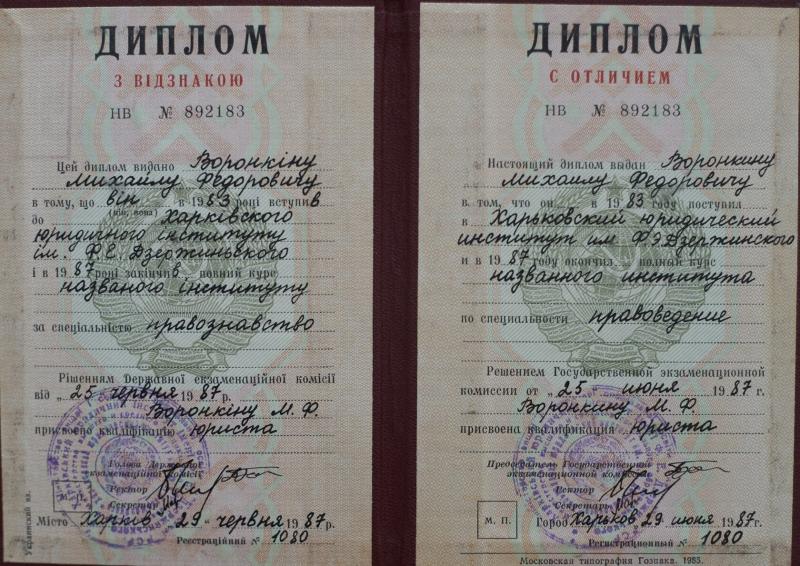 ДИПЛОМ
З ВІДЗНАКОЮ
НВ № 892183
Цей диплом видано Воронкіну
Михайлу Федоровичу
в тому, що він в 1983 році вступив
(він, вона)
до Харківського
юридичного інституту
ім. Ф.Е. Дзержинського
і в 1987 році закінчив повний курс
названого інституту
за спеціальністю правознавство
Рішенням Державної екзаменаційної комісії
від „25" червня 1987 р.
Воронкіну М. Ф.
присвоєно кваліфікацію юриста
Голова Державної
екзаменаційної комісії
Ректор
Секретар
М. П.
Місто Харків 29 „ червня 1987 р.
Реєстраційний № 1080
Украинский яз.
ДИПЛОМ
С ОТЛИЧИЕМ
НВ № 892183
Настоящий диплом выдан Воронкину
Михаилу Федоровичу
в том, что он в 1983 году поступил
в Харьковский юридический
институт им. Ф.Э.Дзержинского
и в 1987 году окончил полный курс
названного института
по специальности правоведение
Решением Государственной экзаменационной
комиссии от „25" июня 1987 г.
Воронкину М. Ф.
присвоена квалификация юриста
Председатель Государственной
экзаменационной комиссии
Ректор
Секретарь
М. П.
Город Харьков 29 июня 1987 г.
Регистрационный № 1080
Московская типография Гознака. 1985.